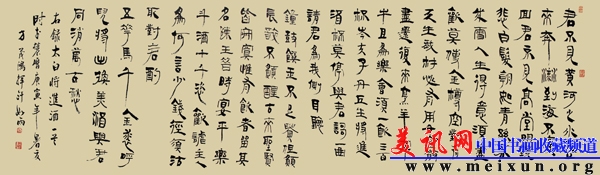 君不見黃河之水天上
來奔流到海不復
回君不見高堂明鏡
悲白髮朝如青絲暮
成雪人生得意須盡
歡莫使金樽空對月
天生我材必有用千金散
盡還復來烹羊宰
牛且為樂會須一飲三百
杯岑夫子丹丘生將進
酒杯莫停與君歌一曲
請君為我傾耳聽
鐘鼓饌玉不足貴但願
長醉不願醒古來聖賢
皆寂寞惟有飲者留其
名陳王昔時宴平樂
斗酒十千恣歡謔主人
為何言少錢徑須沽
取對君酌
五花馬千金裘呼
兒將出換美酒與爾
同銷萬古愁
右錄太白將進酒一首
庚寅年
美讯网
中国书画收藏频道
www.meixun.org